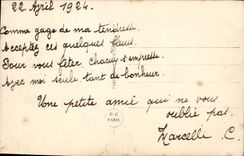 22 Avril 1924.
Comme gage de ma tendresse
Acceptez ces quelques fleurs.
Pour vous fêter, chacun s'empresse
Ayez moi seule tant de bonheur.
Une petite amie qui ne vous
oublie pas.
Marcelle C.
P-C
PARIS